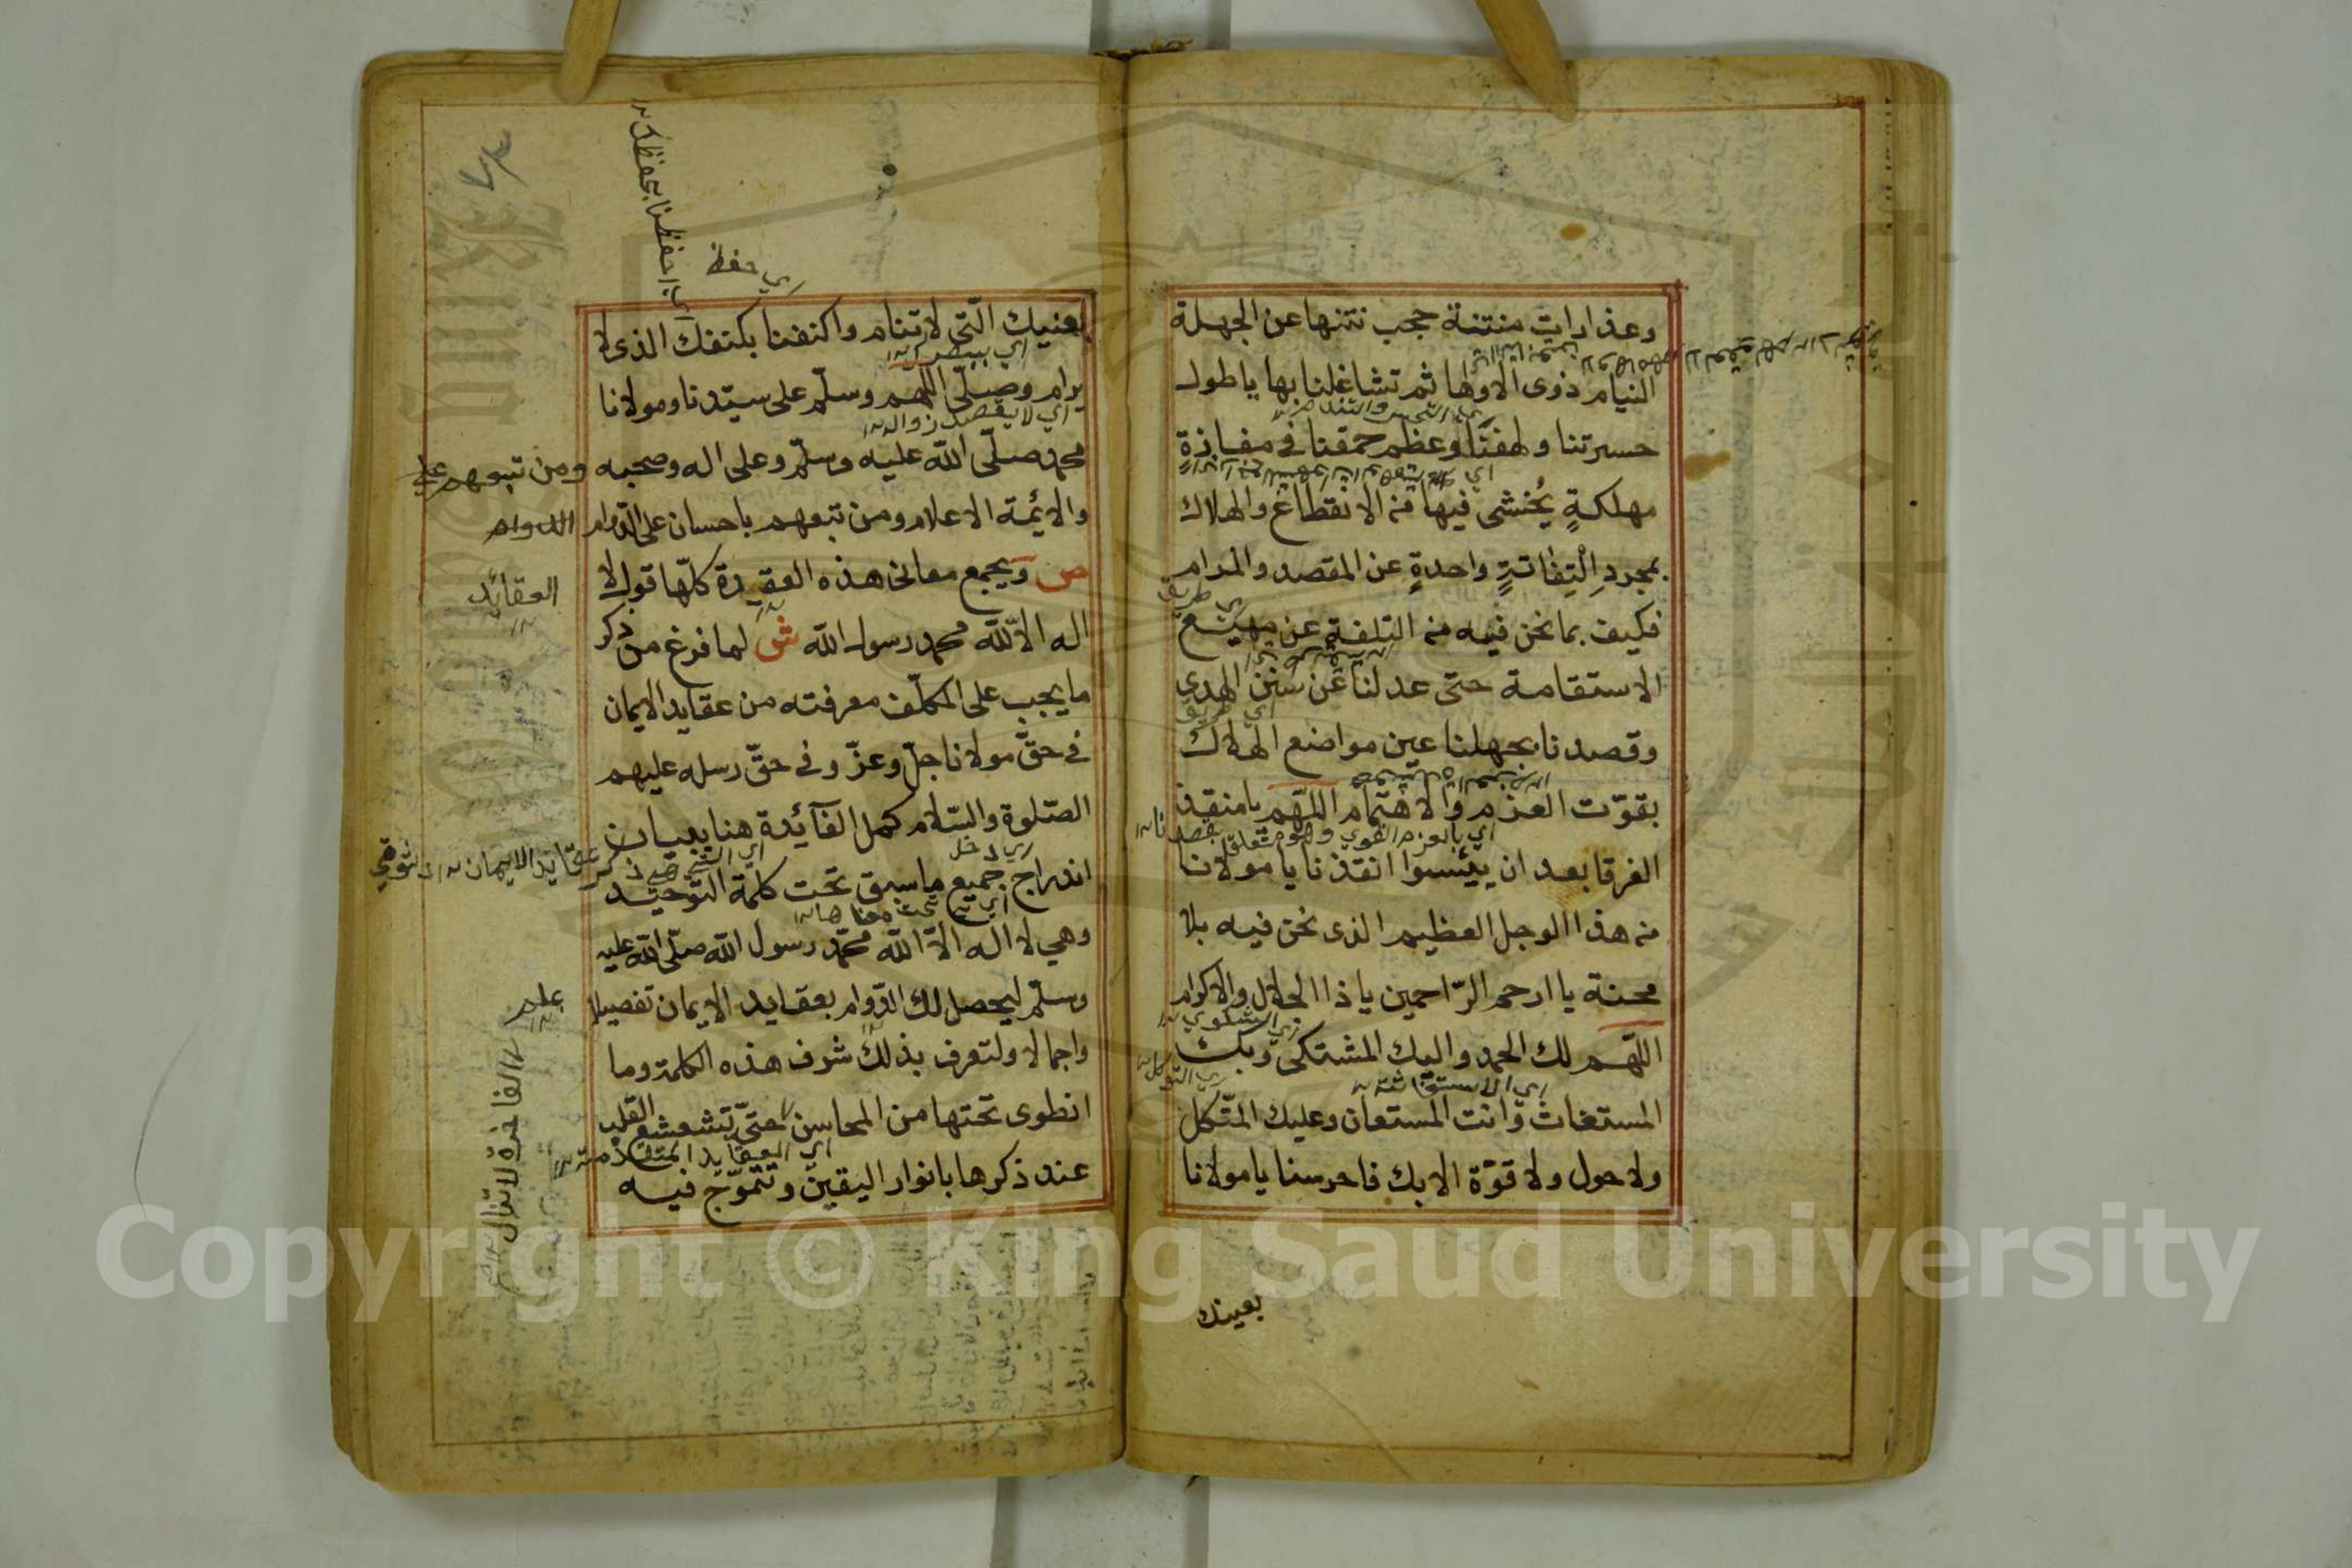 وعذارات منتنة حجب نتنها عن الجهلة
النيام ذوى الاوهام ثم تشاغلنا بها ياطول
حسرتنا ولهفتنا وعظم حمقنا فى مفازة
مهلكةٍ يُخشى فيها من الانقطاع والهلاك
بمجردِ اِلْتِفاتةٍ واحدةٍ عن المقصد والمرام
فكيف بما نحن فيه من التلفة عن مهيع
الاستقامة حتى عدلنا عن سنن الهدى
وقصدنا بجهلنا عين مواضع الهلاك
بقوّت العزم والاهتمام اللهّم يامنقذ
الغرقا بعد ان ييئسوا انقذنا يا مولانا
من هذا الوجل العظيم الذى نحن فيه بلا
محنة يا ارحم الرّاحمين ياذا الجلال والاكرام
اللّهم لك الحمد واليك المشتكى وبك
المستغاث وانت المستعان وعليك المتّكل
ولا حول ولا قوّة الا بك فاحرسنا يا مولانا
بعينك
اي احفظنا بحفظك
اي حفظ
بعنيك الّتى لا تنام واكنفنا بكنفك الذى لا
يرام وصلّى اللهم وسلّم على سيّدنا ومولانا
اي لا يقصد زواله
محمد صلّى الله عليه وسلّم وعلى اله وصحبه ومن تبعهم على
والائمة الاعلام ومن تبعهم باحسان على الدّوام الدوام
ص ويجمع معانى هذه العقيدة كلّها قول لا
العقائد
اله الا الله محمد رسول الله ش لما فرغ من ذكر
ما يجب على المكلّف معرفته من عقايد الايمان
فى حقّ مولانا جلّ وعزّ وفى حقّ رسله عليهم
الصّلوة والسّلام كمل الفآئدة هنا ببيان
اي دخل
اندراج جميع ما سبق تحت كلمة التوحيد
اي تحت معناها
وهي لا اله الاّ الله محمّد رسول الله صلّى الله عليه
وسلّم ليحصل لك الدّوام بعقايد الايمان تفصيلا
علم
واجمالا ولتعرف بذلك شرف هذه الكلمة وما
انطوى تحتها من المحاسن حتىّ تشعشع القلب
اي العقايد المتقدمة
عند ذكرها بانوار اليقين وتتموّج فيه
Copyright © King Saud University